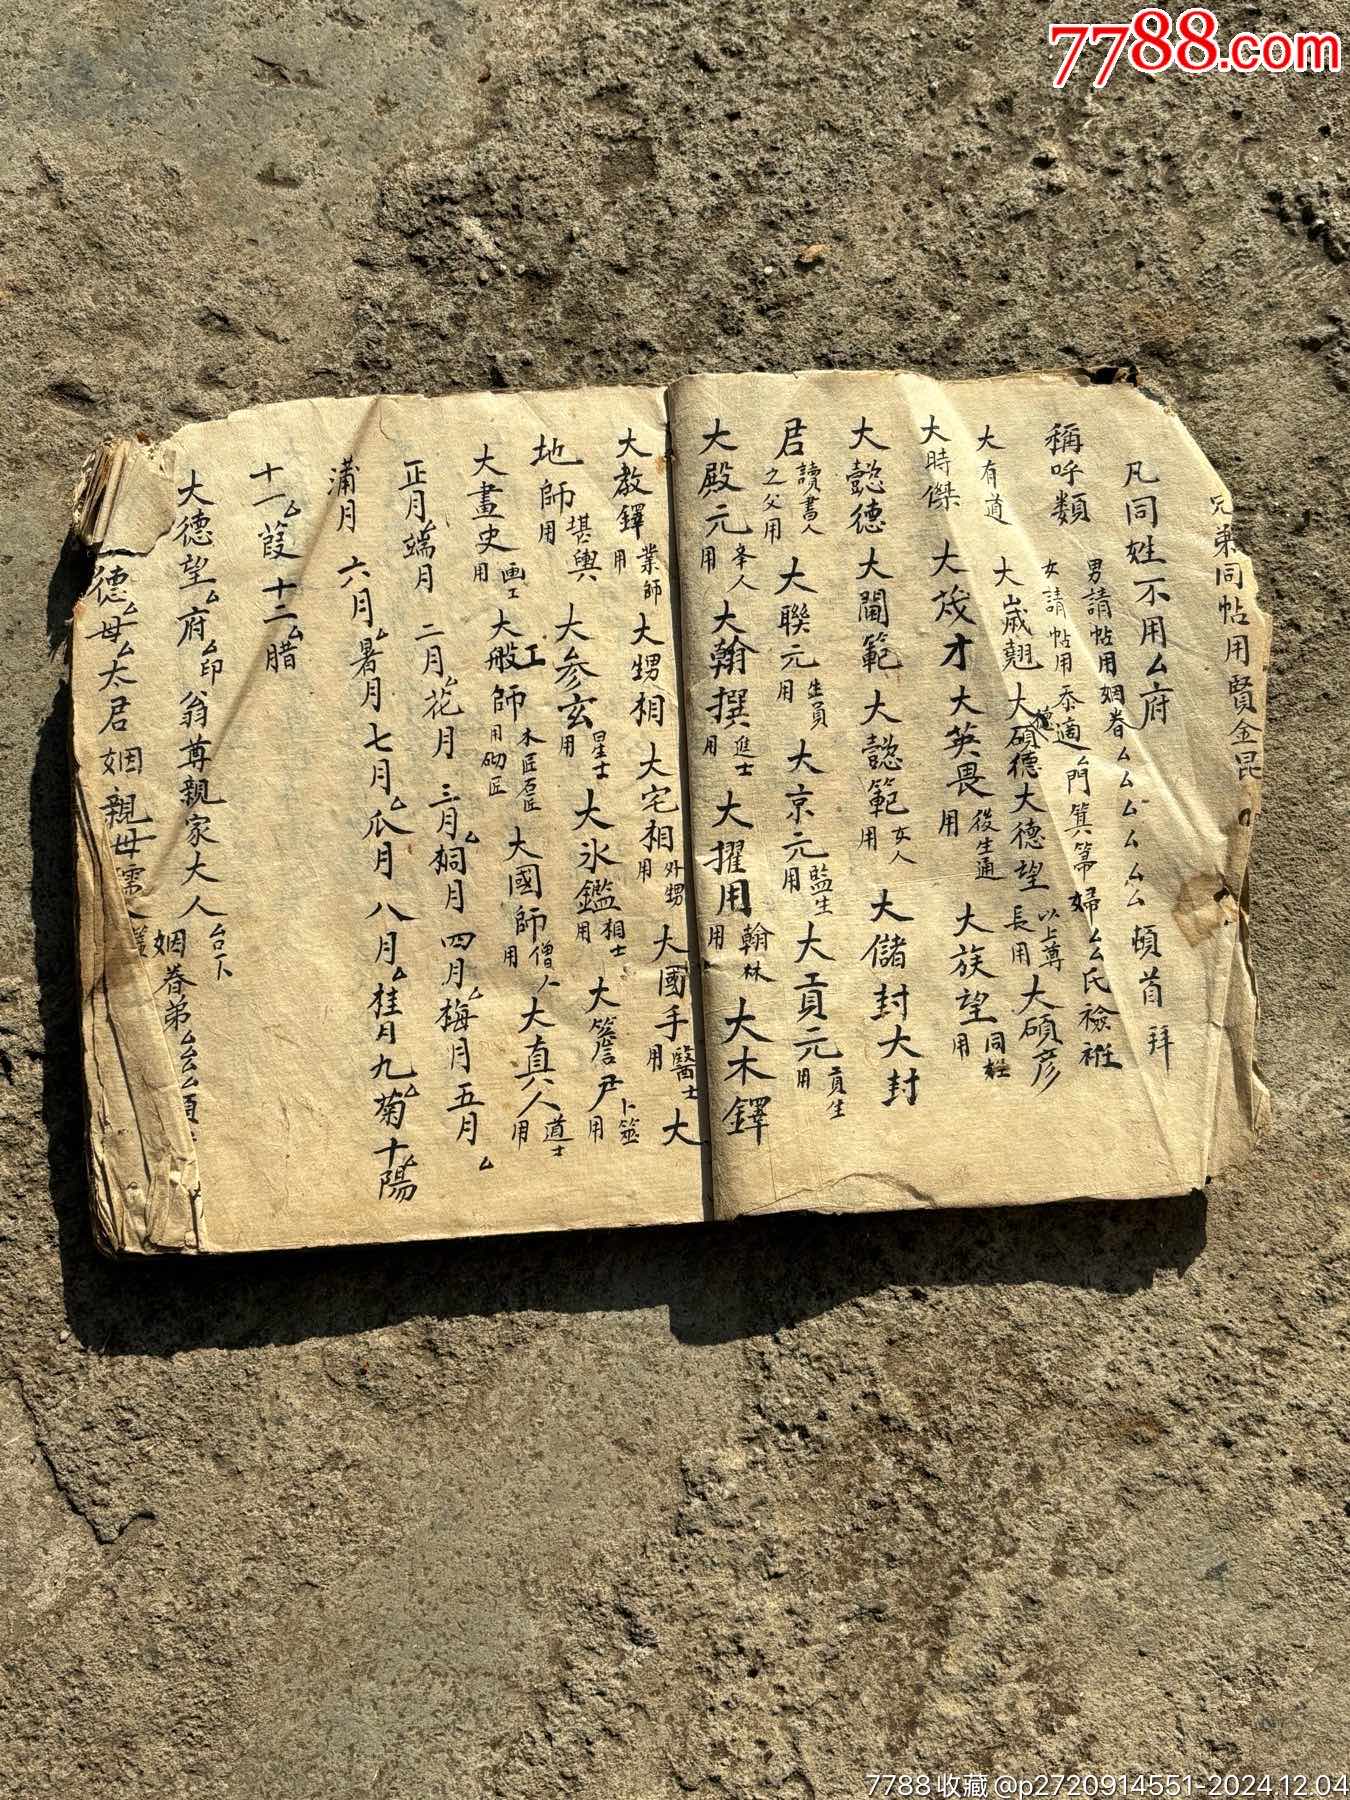 7788.com
兄弟同帖用賢金昆
凡同姓不用厶府
稱呼類 男請帖用 姻眷厶厶厶厶厶厶頓首 拜
女請帖用 忝適厶門箕箒婦厶氏襝衽
大有道 大嵗翹 大碩德 大德望 以上尊長用 大碩彦
大時傑 大茂才 大英畏 後生通用 大族望 同姓用
大懿德 大閫範 大懿範 女人用 大儲封 大封
君 讀書人之父用 大聯元 生員用 大京元 監生用 大貢元 貢生用
大殿元 用 大翰撰 進士用 大擢用 翰林用 大木鐸
大教鐸 業師用 大甥相 大宅相 外甥用 大國手 醫士用 大
地師 堪輿用 大参玄 星士用 大氷鑑 相士用 大詹尹 卜筮用
大畫史 画工用 大般師 木匠石匠砌匠用 大國師 僧人用 大真人 道士用
正月端月 二月厶花月 三月厶桐月 四月厶梅月 五月厶
蒲月 六月厶暑月 七月厶瓜月 八月厶桂月 九厶菊 十厶陽
十一厶葭 十二厶腊
大德望厶府厶印翁尊親家大人台下 姻眷弟厶厶厶頓
德厶母厶太君 姻親母孺人
7788收藏@p2720914551-2024.12.04